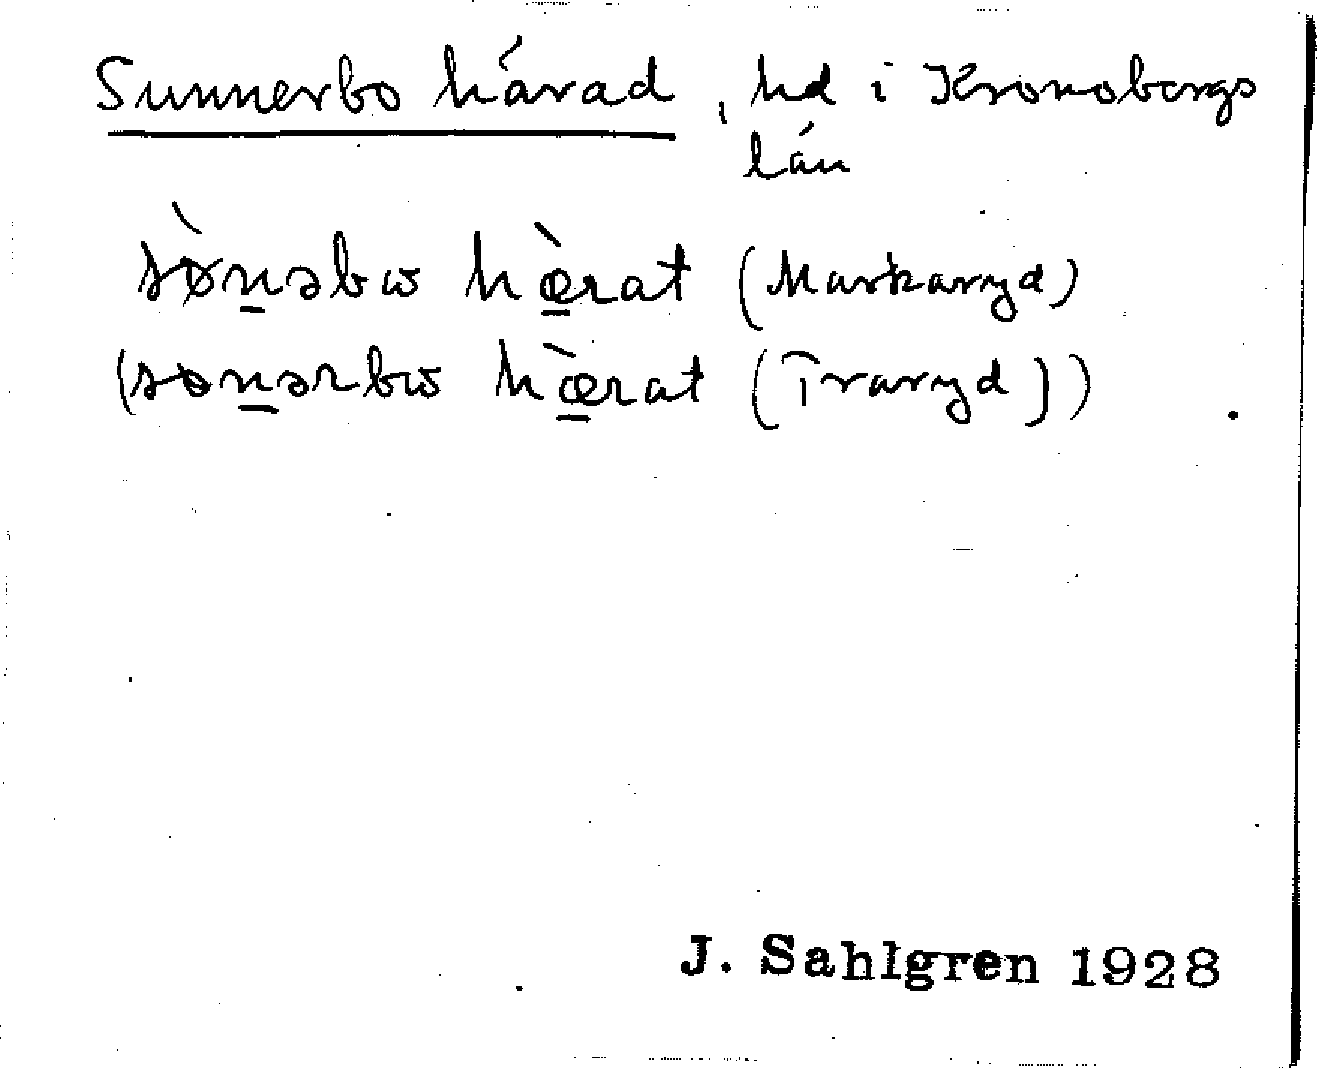 Sunnerbo härad, hd i Kronobergs
län
sø̀n̲əbω hæ̲̀rat (Markaryd)
(søn̲ərbω hæ̲̀rat (Traryd))
J. Sahlgren 1928